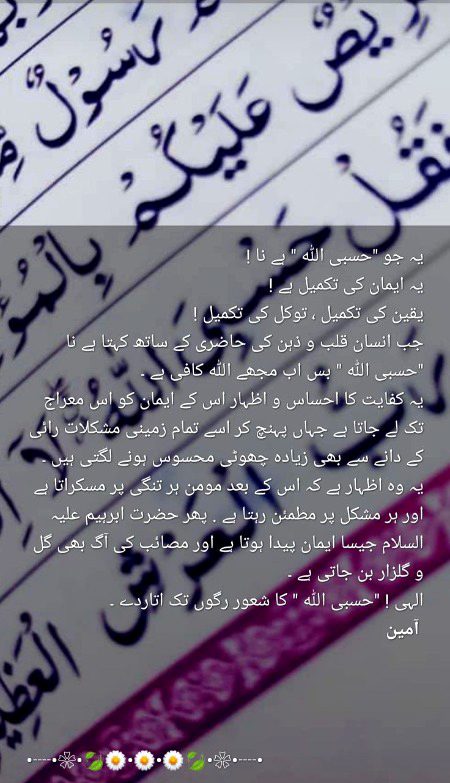 رَسُوْلٌ
عَلَيْكُمْ
فَقُلْ حَسْبِيَ اللّٰهُ
الْعَظِيْمِ
یہ جو "حسبی اللّٰه " ہے نا !
یہ ایمان کی تکمیل ہے !
یقین کی تکمیل ، توکل کی تکمیل !
جب انسان قلب و ذہن کی حاضری کے ساتھ کہتا ہے نا
"حسبی اللّٰه " بس اب مجھے اللّٰه کافی ہے ۔
یہ کفایت کا احساس و اظہار اس کے ایمان کو اس معراج
تک لے جاتا ہے جہاں پہنچ کر اسے تمام زمینی مشکلات رائی
کے دانے سے بھی زیادہ چھوٹی محسوس ہونے لگتی ہیں ۔
یہ وہ اظہار ہے کہ اس کے بعد مومن ہر تنگی پر مسکراتا ہے
اور ہر مشکل پر مطمئن رہتا ہے . پھر حضرت ابرہیم علیہ
السلام جیسا ایمان پیدا ہوتا ہے اور مصائب کی آگ بھی گل
و گلزار بن جاتی ہے ۔
الہی ! "حسبی اللّٰه " کا شعور رگوں تک اتاردے ۔
آمین